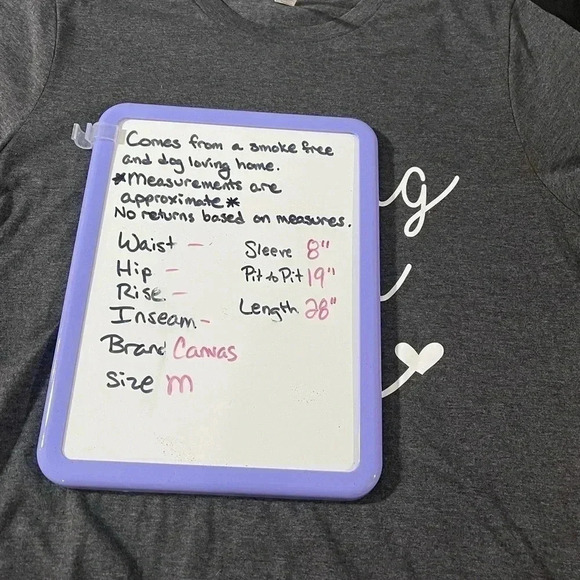 Comes from a smoke free
and dog loving home.
*Measurements are
approximate*
No returns based on measures.
Waist -
Hip -
Rise. -
Inseam -
Brand Canvas
Size M
Sleeve 8"
Pit to Pit 19"
Length 28"
g